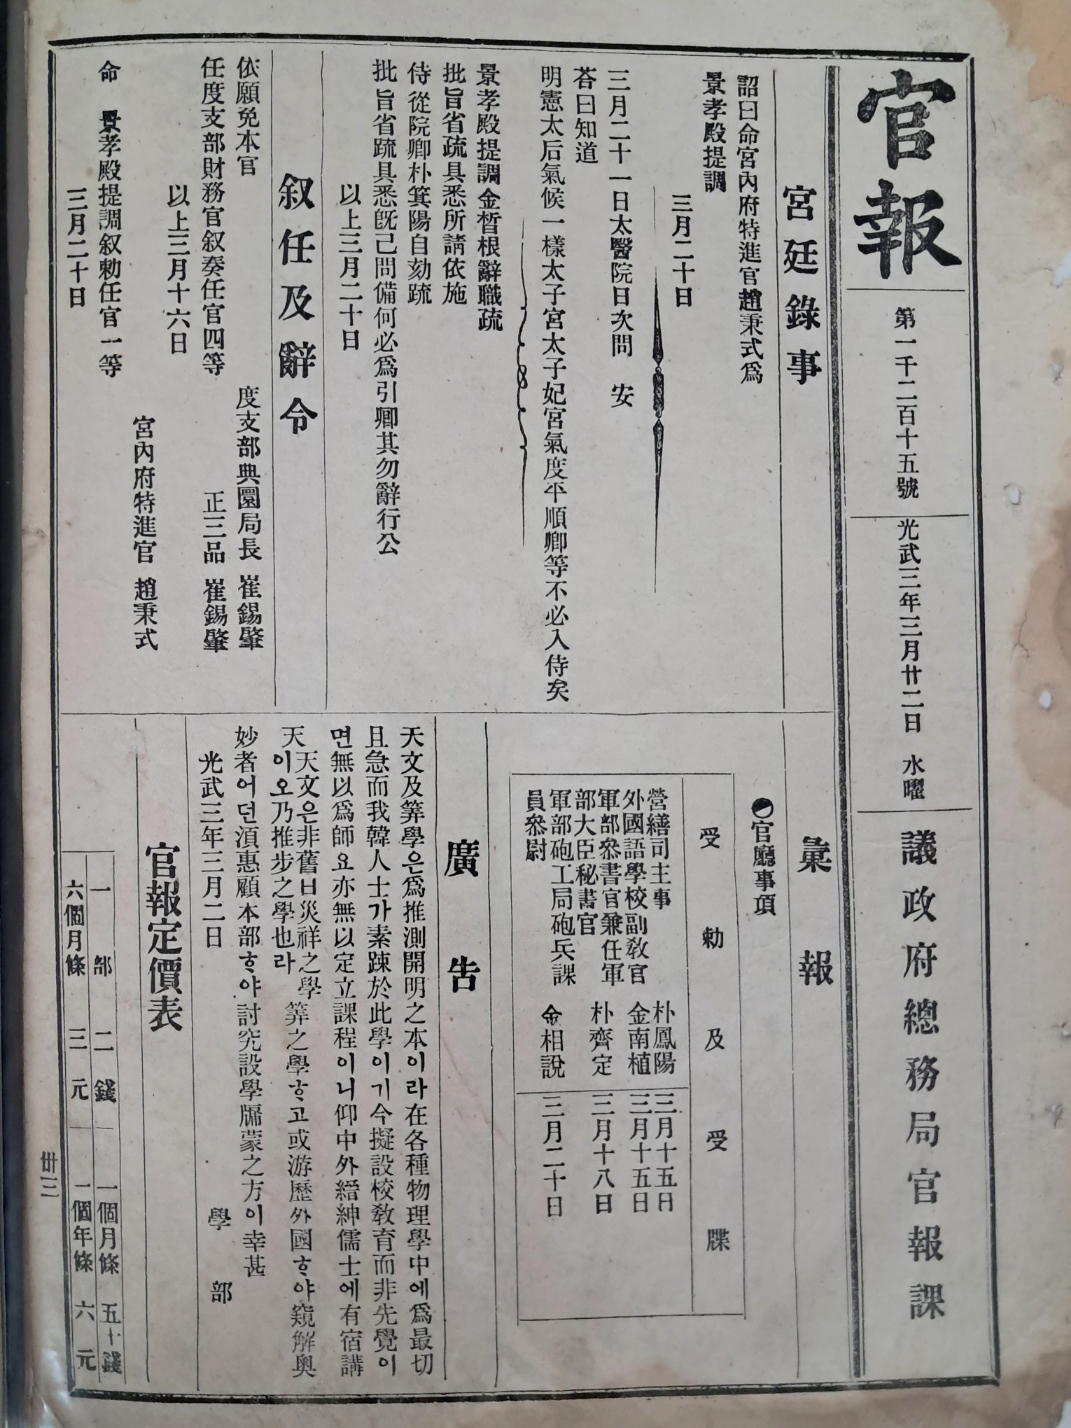 官報
第一千二百十五號
光武三年三月廿二日 水曜
議政府總務局官報課
宮廷錄事
詔曰命宮內府特進官趙秉式爲
景孝殿提調
三月二十日
三月二十一日太醫院日次問 安
答曰知道
明憲太后氣候一樣太子宮太子妃宮氣度平順卿等不必入侍矣
景孝殿提調金晳根辭職疏
批旨省疏具悉所請依施
侍從院卿朴箕陽自劾疏
批旨省疏具悉旣己問備何必爲引卿其勿辭行公
以上三月二十日
叙任及辭令
依願免本官 度支部典圜局長 崔錫肇
任度支部財務官叙奏任官四等 正三品 崔錫肇
以上三月十六日
宮內府特進官 趙秉式
命 景孝殿提調叙勅任官一等
三月二十日
彙報
官廳事項
受勅及受牒
營繕司主事 朴鳳陽 三月十五日
外國語學校副敎官 金南植 三月十五日
軍部參書官兼任軍
部大臣秘書官 朴齊定 三月十八日
軍部砲工局砲兵課
員參尉 金相說 三月二十日
廣告
天文及筭學은爲推測開明之本이라在各種物理學中에爲最切
且急而我韓人士가素踈於此學이기今擬設校敎育而非先覺이
면無以爲師요亦無以定立課程이니仰中外縉紳儒士에有宿講
天天文은非舊日災祥之學 筭之學ᄒᆞ고或游歷外國ᄒᆞ야窺解奧
이오乃推步之學也라
妙者어던湏惠顧本部ᄒᆞ야討究設學牖蒙之方이幸甚
光武三年三月二日 學部
官報定價表
一部 二錢 一個月條 五十錢
六個月條 三元 一個年條 六元
卅三